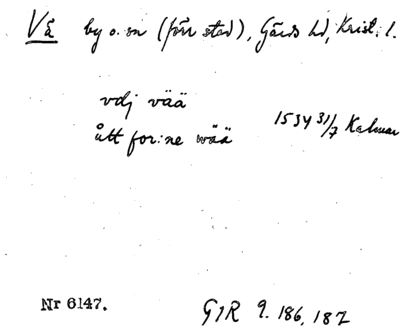 Vä by o. sn (förr stad), Gärds hd, Krist. l.
vdj vää
ått for:ne wää 1534 31/7 Kalmar
Nr 6147. G1R 9. 186, 187